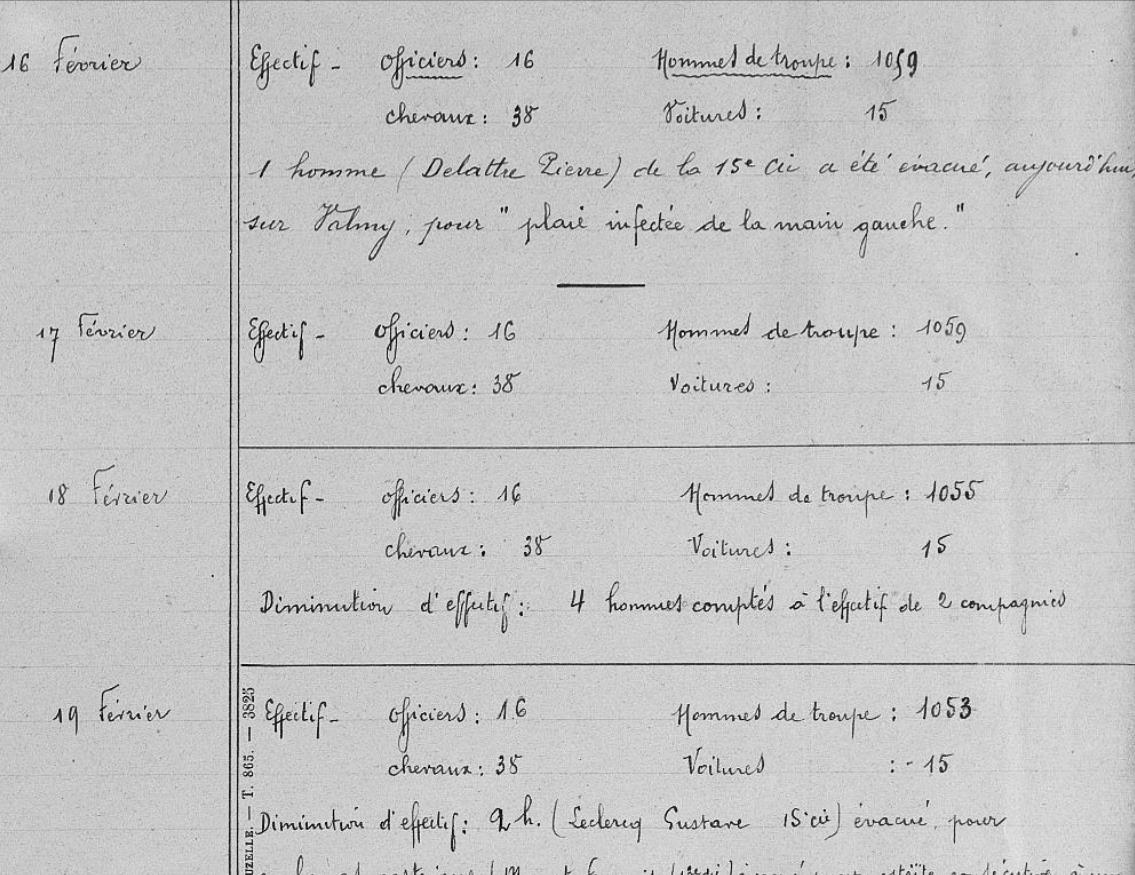 16 Février
Effectif - officiers : 16 Hommes de troupe : 1059
chevaux : 38 Voitures : 15
1 homme (Delattre Pierre) de la 15e Cie a été évacué, aujourd'hui,
sur Valmy, pour " plaie infectée de la main gauche."
17 Février
Effectif - officiers : 16 Hommes de troupe : 1059
chevaux : 38 Voitures : 15
18 Février
Effectif - officiers : 16 Hommes de troupe : 1055
chevaux : 38 Voitures : 15
Diminution d'effectif : 4 hommes comptés à l'effectif de 2 compagnies
19 Février
Effectif - officiers : 16 Hommes de troupe : 1053
chevaux : 38 Voitures : - 15
Diminution d'effectif : 2 h. (Leclercq Gustave 15e cie) évacué, pour
UZELLE. — T. 865. — 3825